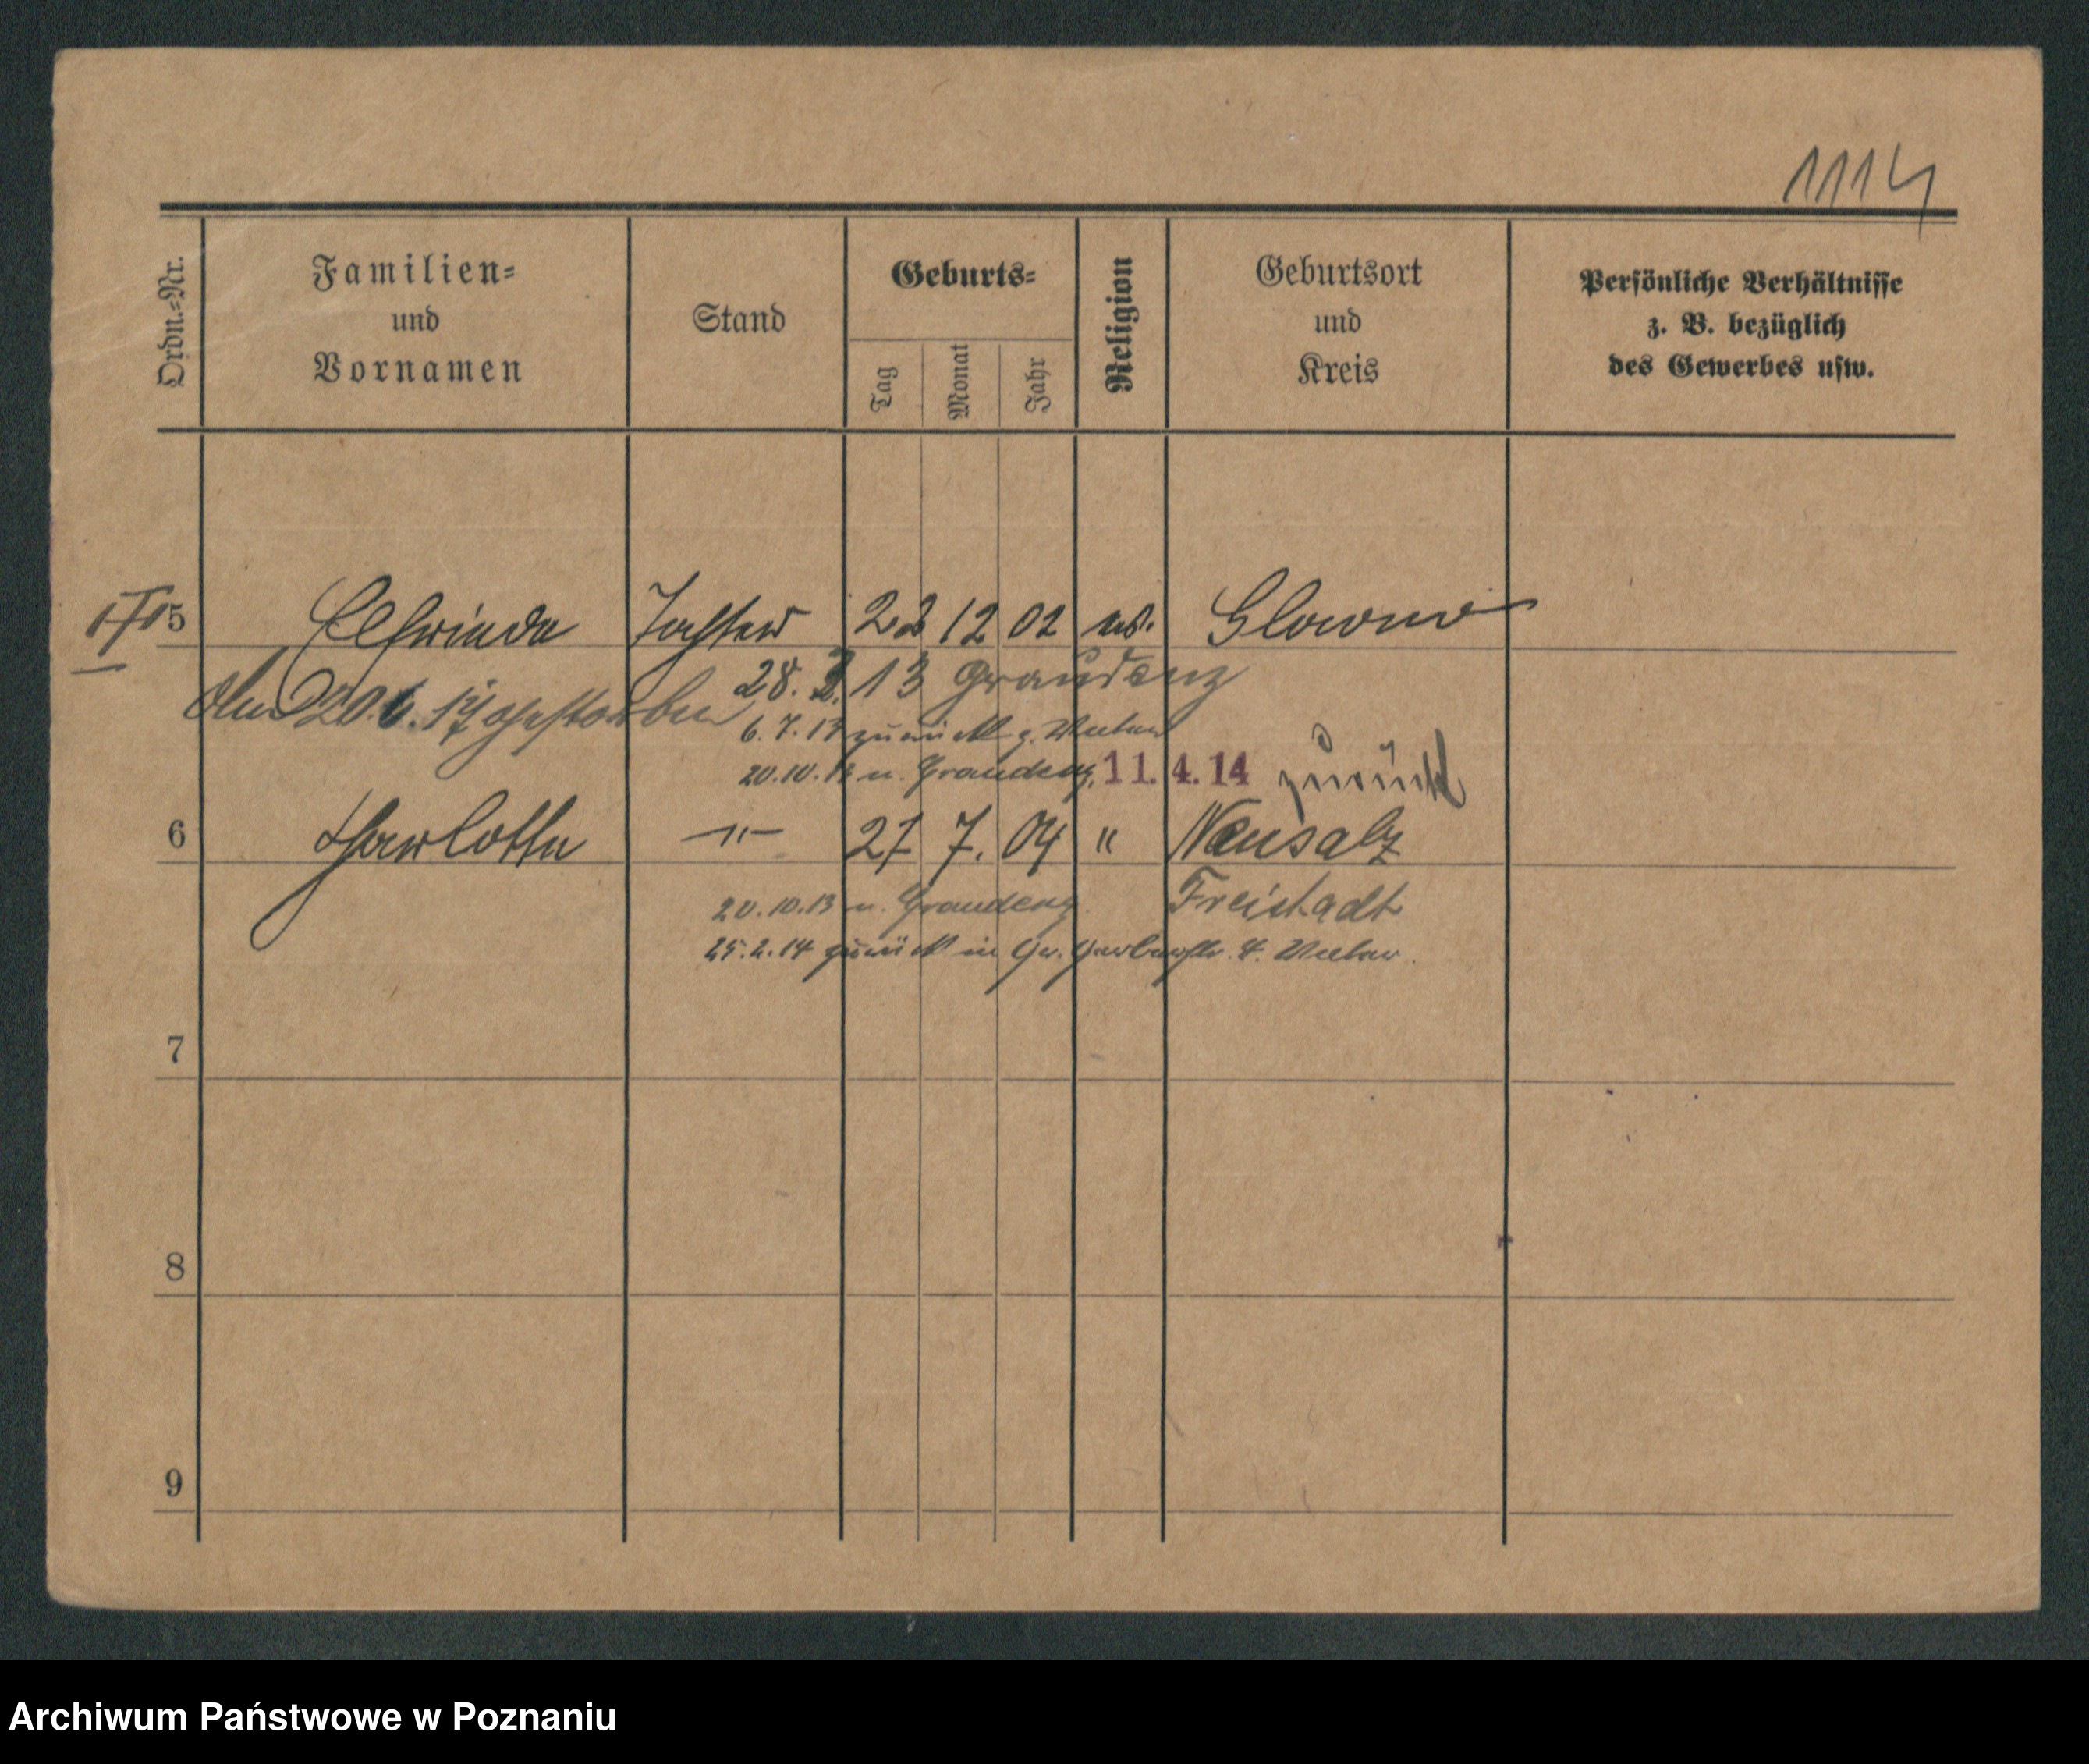 1114
Ordn.=Nr.
Familien=
und
Vornamen
Stand
Geburts=
Tag
Monat
Jahr
Religion
Geburtsort
und
Kreis
Persönliche Verhältnisse
z. B. bezüglich
des Gewerbes usw.
5 Elfriede Tochter 22 12 02 ev. Glowno
28. 2. 13 Graudenz
Am 20.6.17 gestorben
6.7.13 zurück z. Vater
20.10.13 n. Graudenz, 11.4.14 zurück
6 Charlotte -"- 27 7. 04 " Neusalz
20.10.13 n. Graudenz Freistadt
25.2.14 zurück in Gr. Gerberstr. 4. Vater.
7
8
9
Archiwum Państwowe w Poznaniu